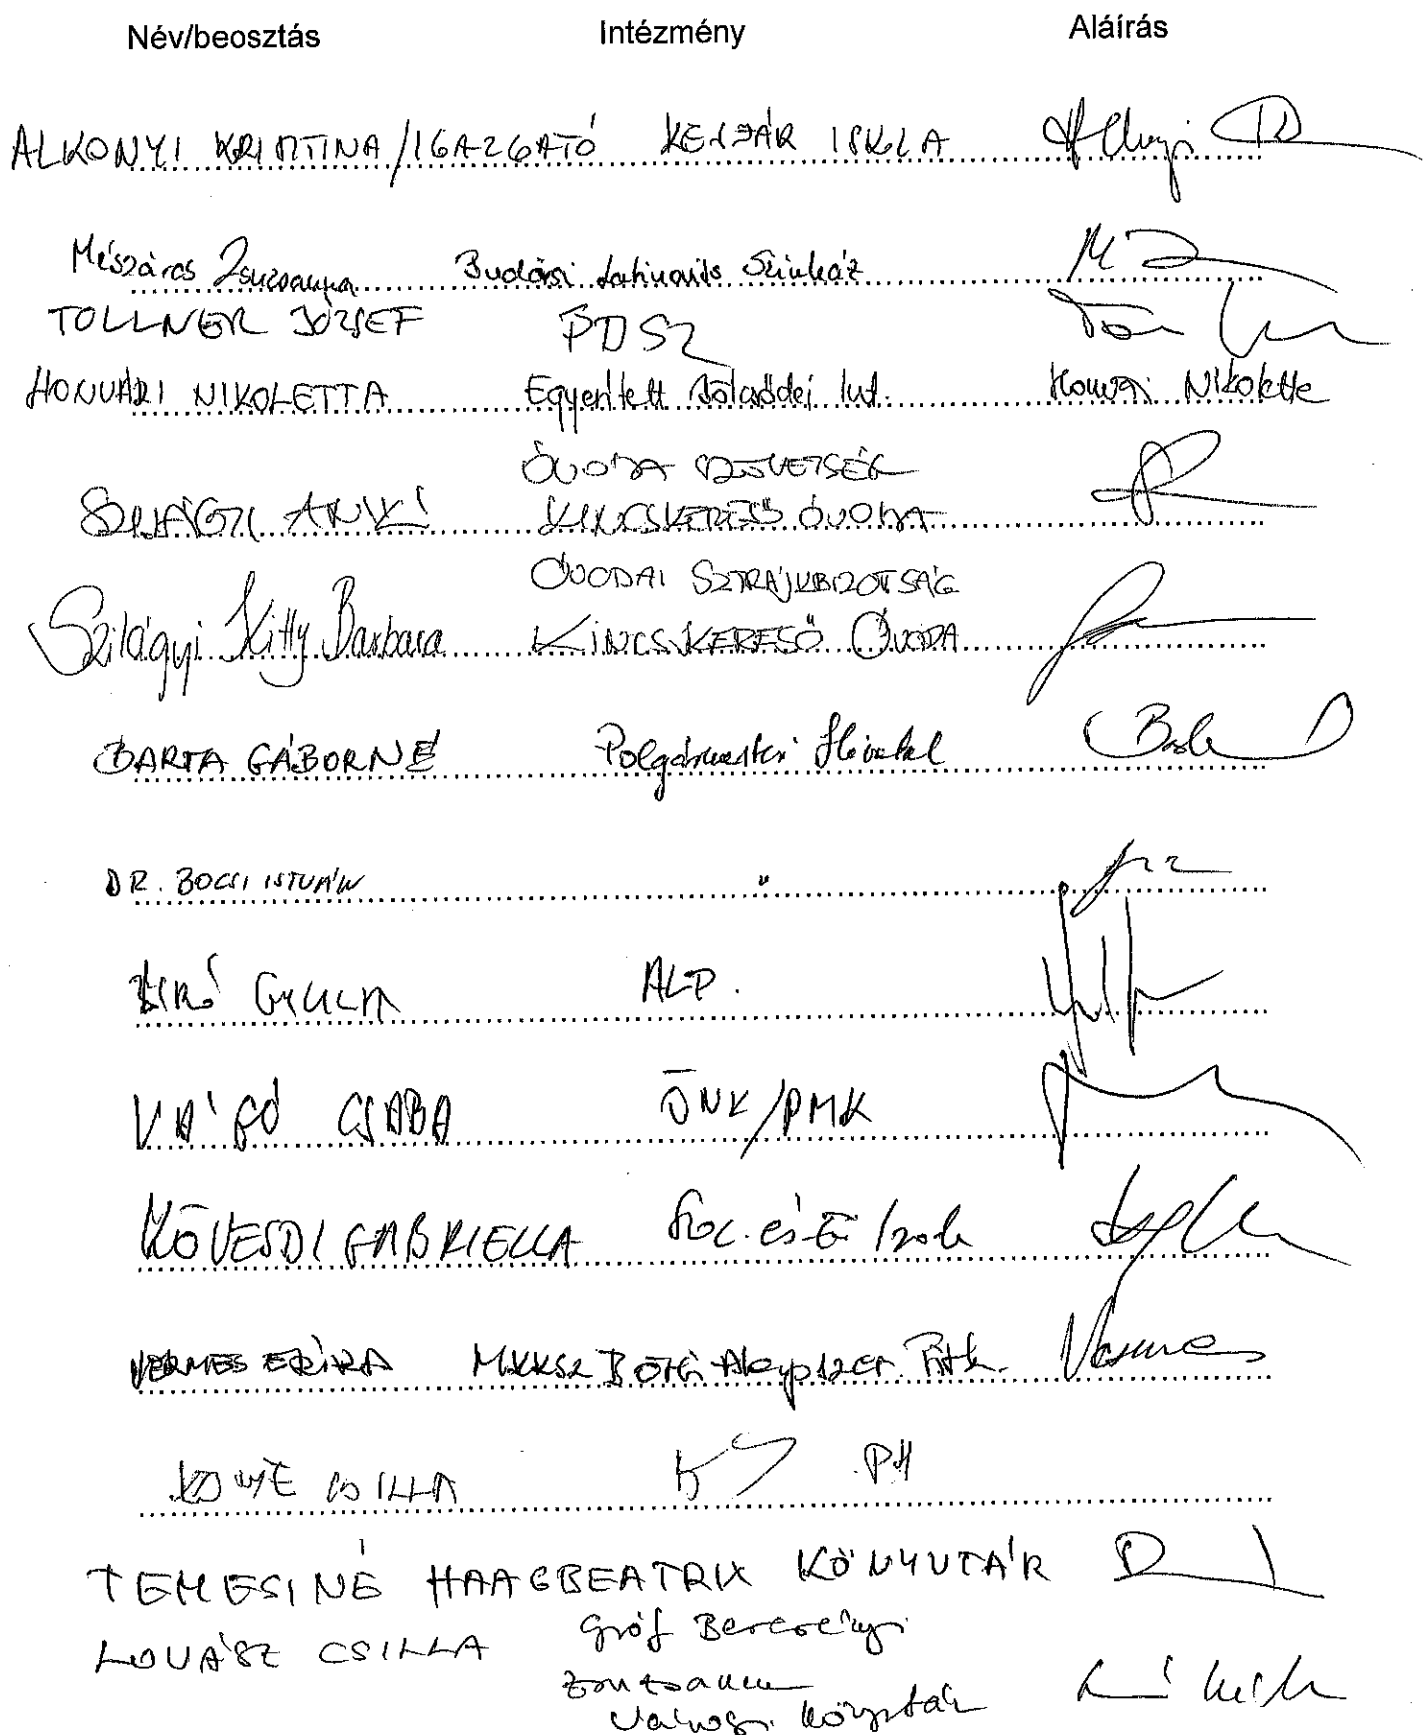 Név/beosztás Intézmény Aláírás
ALKONYI KRISZTINA/IGAZGATÓ
Mészáros Zsuzsanna Budaörsi Latinovits Színház
TOLLNER JÓZSEF PDSZ
HONVÁRI NIKOLETTA Egyesített Bölcsődei Int. Honvári Nikolette
ÓVODA SZÖVETSÉG
SZILÁGYI ANIKÓ KINCSKERESŐ ÓVODA
ÓVODAI SZTRÁJKBIZOTSÁG
Szilágyi Kitty Barbara KINCSKERESŐ ÓVODA
BARTA GÁBORNÉ Polgármesteri Hivatal
DR. BOCSI ISTVÁN "
BIRÓ GYULA ALP.
VÁGÓ CSABA ÖNK/PMK
KÖVESDI GABRIELLA Szoc. és E Iroda
VERMES ERIKA MKKSZ Vermes
CSILLA PH
TEMESINÉ HAAG BEATRIX KÖNYVTÁR
LOVÁSZ CSILLA Gróf Bercsényi
Zsuzsanna
Városi Könyvtár